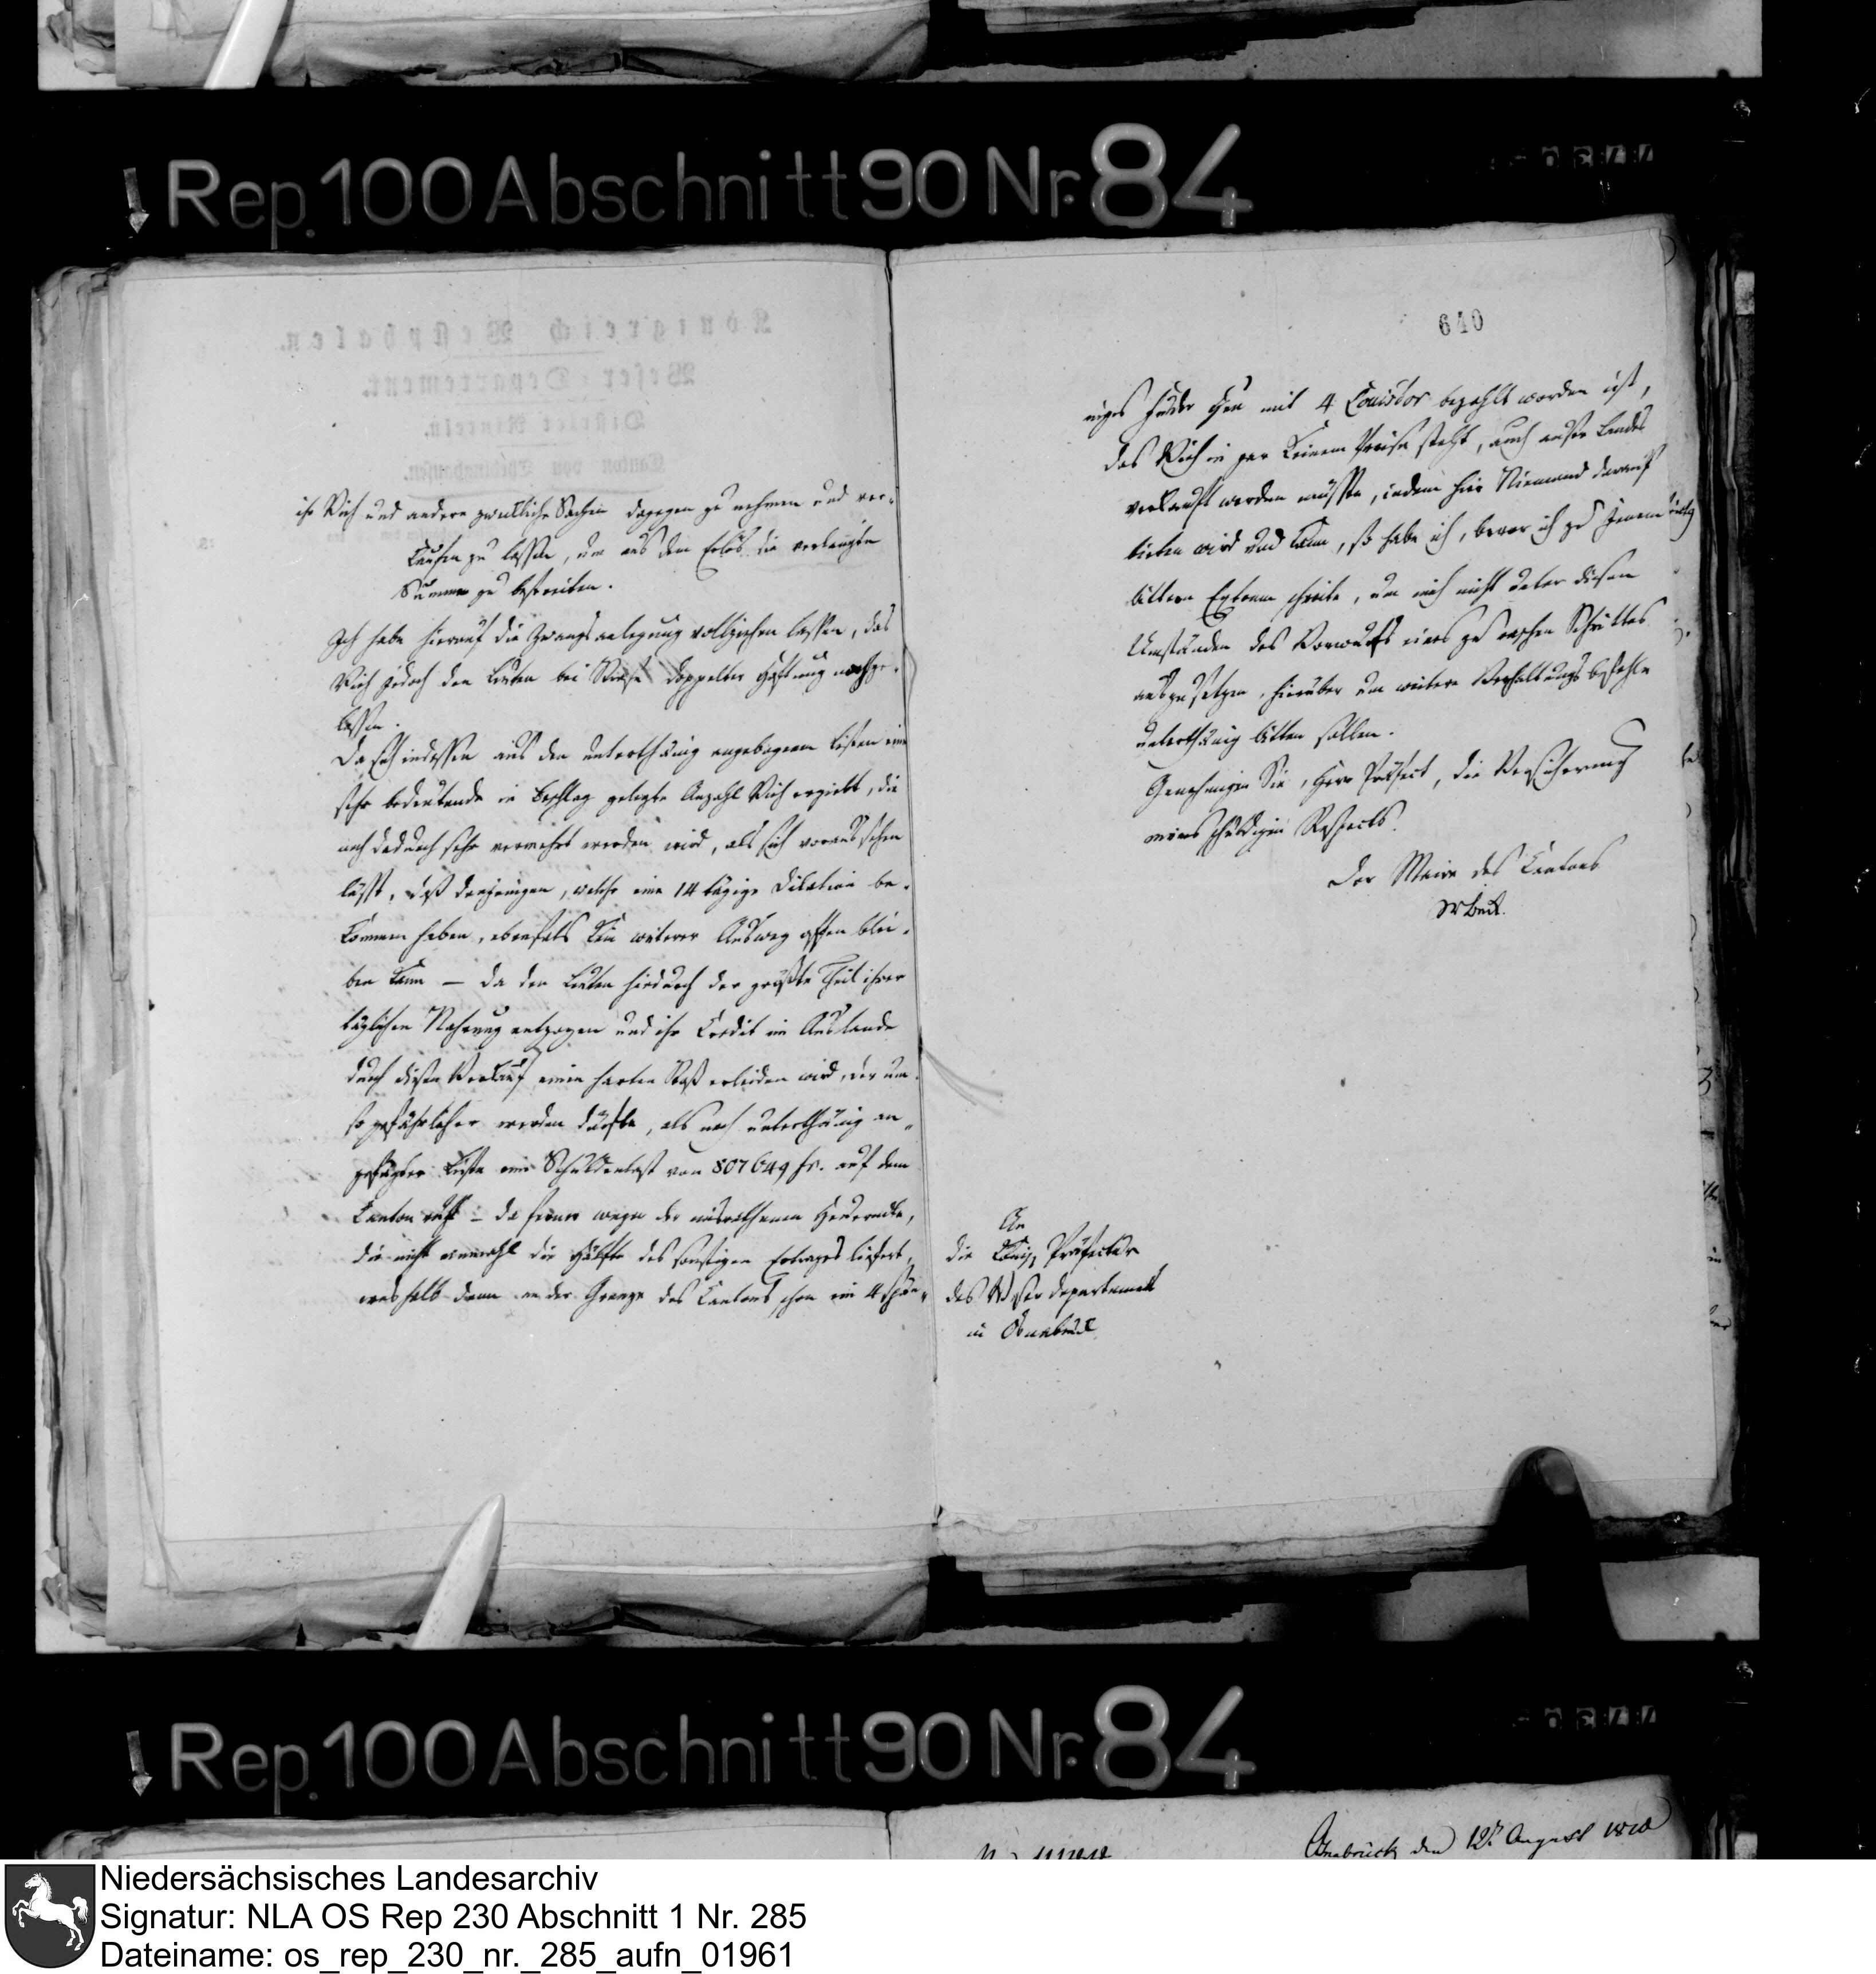 Rep. 100 Abschnitt 90 Nr. 84
ihr Vieh und andere zweckliche Sachen dagegen zu nehmen und ver-
kaufen zu lassen, um aus dem Erlös die verlangte
Summe zu bestreiten.
Ich habe hierauf die Zwangsanlegung vollziehen lassen, das
Vieh jedoch den Leuten bei Strafe doppelter Haftung nachge-
lassen.
Da sich indessen aus den unterthänig angebogenen Listen eine
sehr bedeutende in Beschlag gelegte Anzahl Vieh ergiebt, die
noch dadurch sehr vermehrt werden wird, als sich voraus sehen
lässt, daß denjenigen, welche eine 14 tägige Dilation be-
kommen haben, ebenfals kein weiterer Ausweg offen blei-
ben kann — da den Leuten hiedurch der größte Theil ihrer
täglichen Nahrung entzogen und ihr Credit im Auslande
durch diesen Verkauf einen harten Stoß erleiden wird, der um
so gefährlicher werden dürfte, als nach unterthänig an-
gefügter Liste eine Schuldenlast von 807649 fr. auf dem
Canton ruht — da ferner wegen der misrathenen Heuernte,
die nicht einmahl die Hälfte des sonstigen Ertrages liefert,
weshalb denn an der Grenze des Cantons schon ein 4 spän-
640
niges Fuder Heu mit 4 Louisdor bezahlt worden ist,
das Vieh in gar keinem Preise steht, auch außer Landes
verkauft werden müsste, indem hier Niemand darauf
bieten wird und kann, so habe ich, bevor ich zu jenem
bittern Extrem schreite, um mich nicht unter diesen
Umständen des Vorwurfs eines zu raschen Schrittes
auszusetzen, hierüber um weitere Verhaltungsbefehle
unterthänig bitten sollen.
Genehmigen Sie, Herr Präfect, die Versicherung
meines schuldigen Respects.
Der Maire des Cantons
An
die Königl. Präfectur
des Weser Departements
in Osnabrück
Rep. 100 Abschnitt 90 Nr. 84
Osnabrück den 12t August 1810
Niedersächsisches Landesarchiv
Signatur: NLA OS Rep 230 Abschnitt 1 Nr. 285
Dateiname: os_rep_230_nr._285_aufn_01961